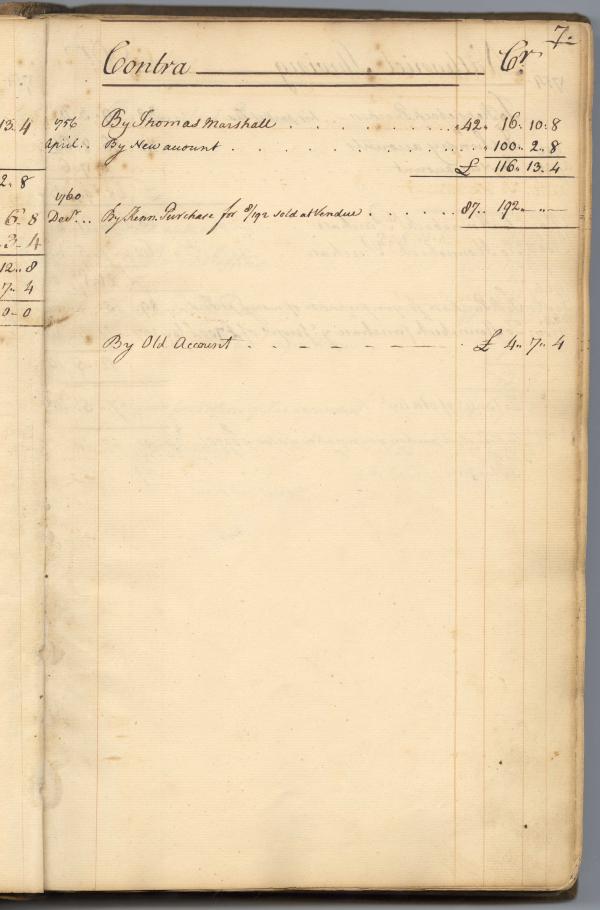 7.
Contra Cr.
13. 4
1756 By Thomas Marshall . . . . . . . . . . 42.. 16.. 10.. 8
April.. By New account . . . . . . . . . . 100.. 2.. 8
£ 116.. 13.. 4
2.. 8
1760
6.. 8 Decr... By Kenn. Purchase for 8/192 sold at Vendue . . . . . . 87.. 192.. .. —
3.. 4
12.. 8
7.. 4
0.. 0
By Old Account . . – – – — £ 4.. 7.. 4